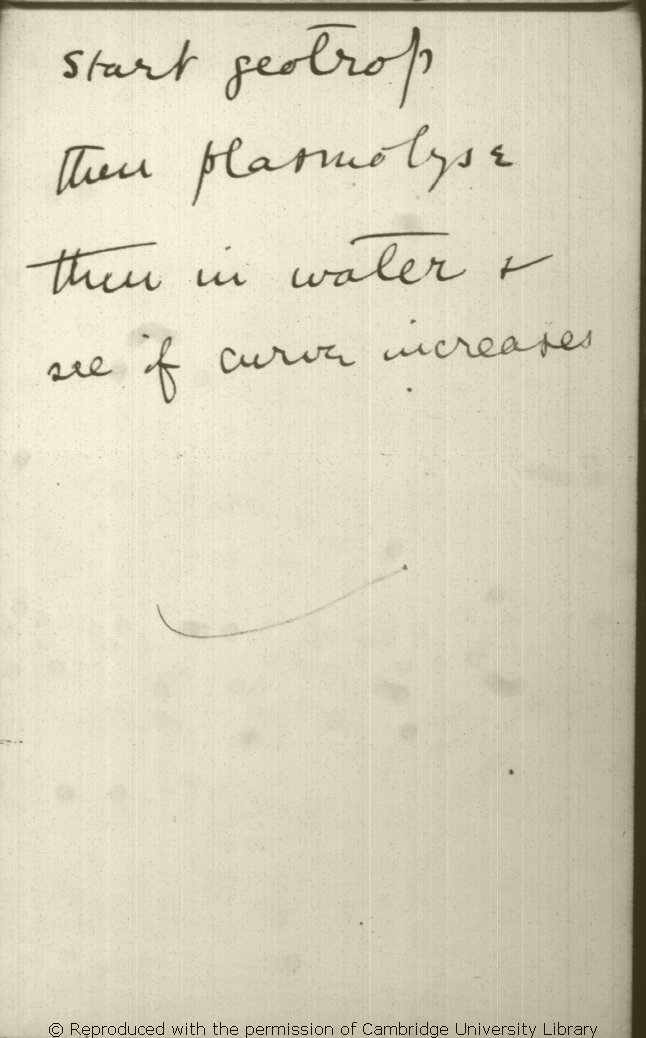 start geotrop
then plasmolyse
then in water &
see if curve increases
© Reproduced with the permission of Cambridge University Library